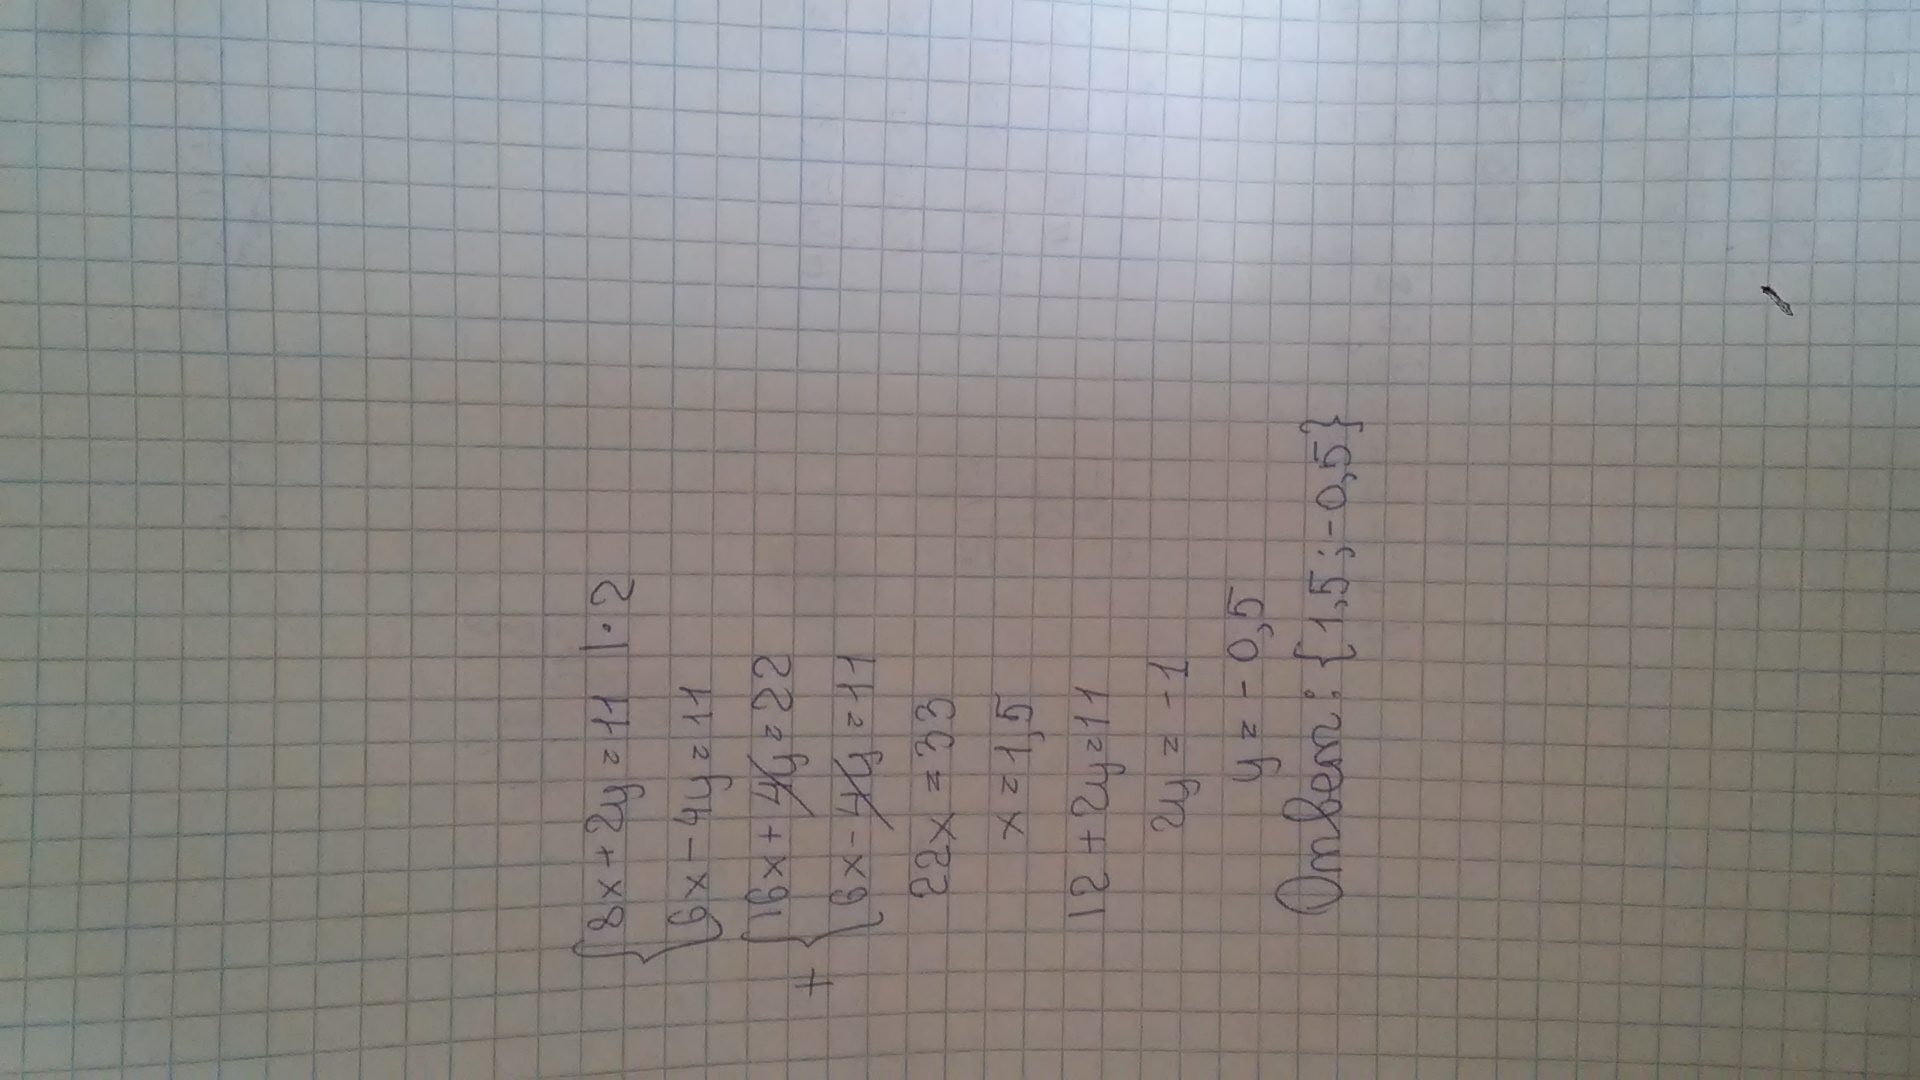 {8x + 2y = 11 |·2
{6x - 4y = 11
+ {16x + 4y = 22
{6x - 4y = 11
22x = 33
x = 1,5
12 + 2y = 11
2y = -1
y = -0,5
Ответ: {1,5; -0,5}